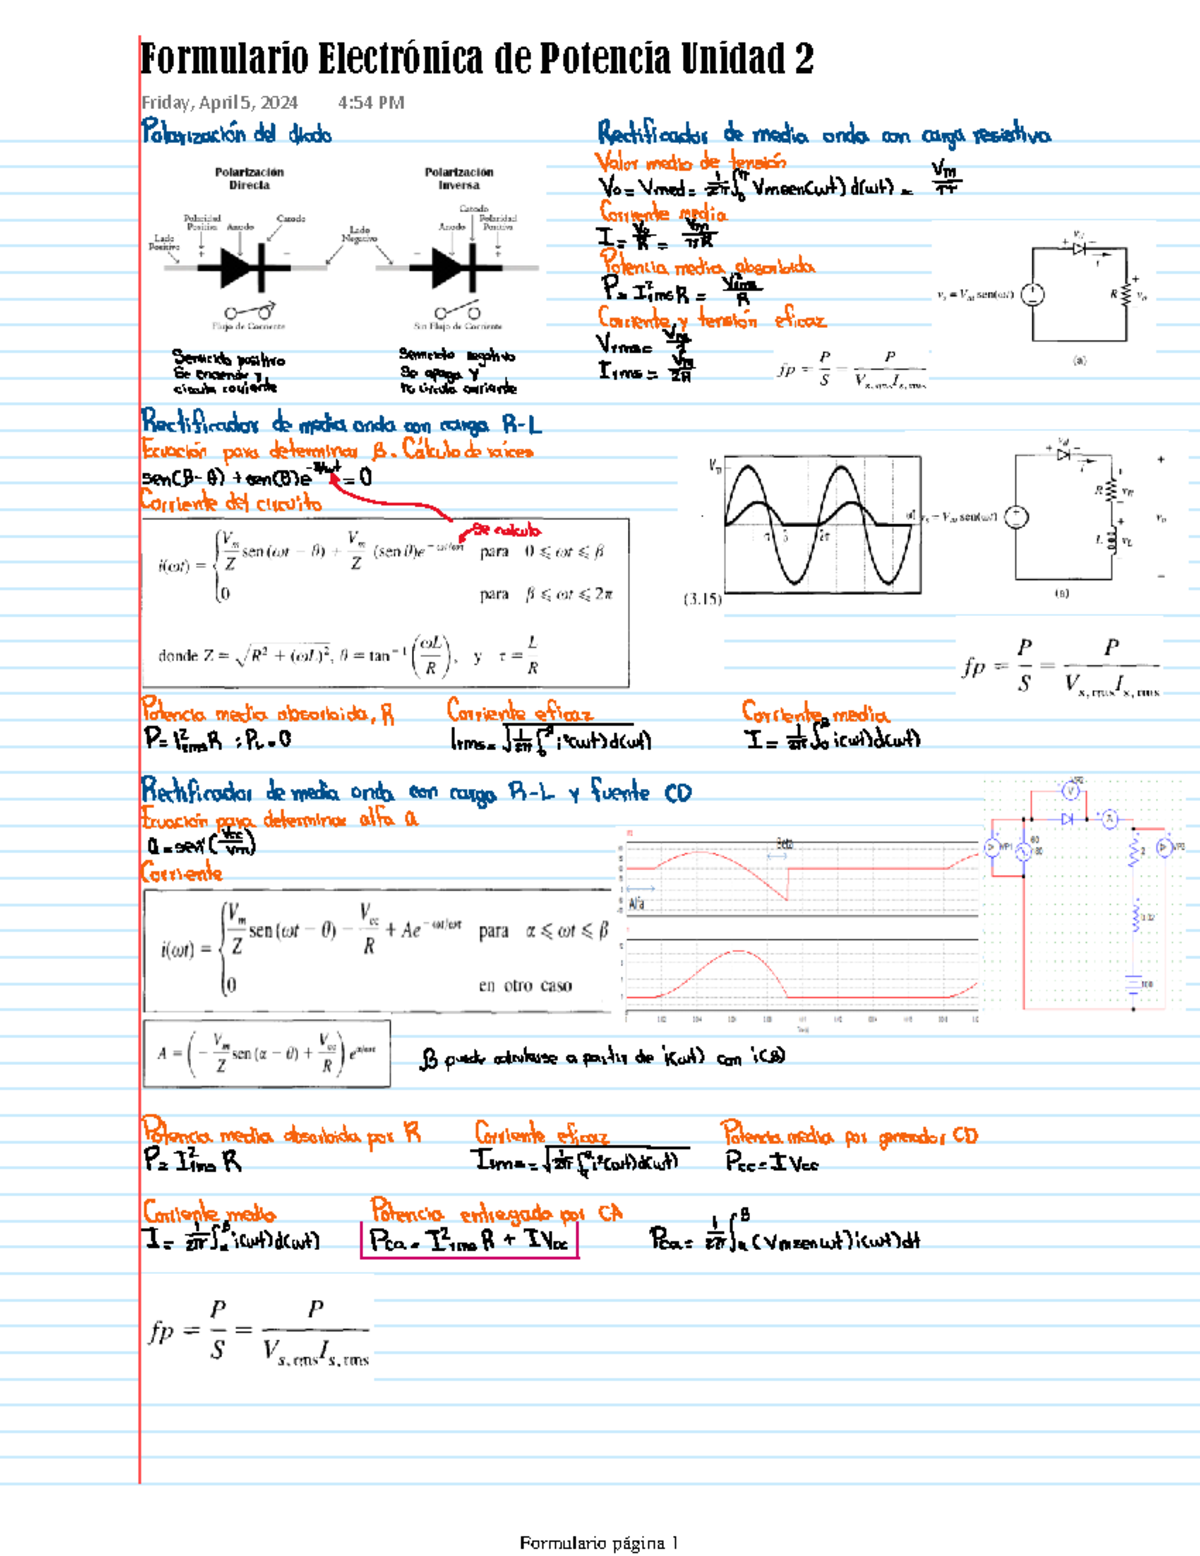 Formulario Electrónica de Potencia Unidad 2
Friday, April 5, 2024 4:54 PM
Polarización del diodo
Polarización Directa
Polarización Inversa
Polaridad Positiva
Anodo
Catodo
Lado Positivo
Lado Negativo
Catodo
Anodo
Polaridad Positiva
+
−
−
+
Flujo de Corriente
Sin Flujo de Corriente
Semiciclo positivo
Se enciende y
circula corriente
Semiciclo negativo
Se apaga y
no circula corriente
Rectificador de media onda con carga resistiva
Valor medio de tensión
Vo = Vmed = 1/2π ∫₀^π Vmsen(wt) d(wt) = Vm/π
Corriente media
I = Vo/R = Vm/πR
Potencia media absorbida
P = I²rms R = V²rms/R
Corriente y tensión eficaz
Vrms = Vm/2
Irms = Vm/2R
fp = P/S = P/(Vs,rms Is,rms)
vs = Vm sen(ωt)
R
vo
(a)
Rectificador de media onda con carga R-L
Ecuación para determinar β. Cálculo de raíces
sen(β-θ) + sen(θ)e = 0
Corriente del circuito
Se calcula
i(ωt) = { Vm/Z sen (ωt − θ) + Vm/Z (sen θ)e^−ωt/ωτ para 0 ⩽ ωt ⩽ β
0 para β ⩽ ωt ⩽ 2π
(3.15)
donde Z = √R² + (ωL)², θ = tan⁻¹(ωL/R), y τ = L/R
vs = Vm sen(ωt)
R
vR
L
vL
vo
(a)
fp = P/S = P/(Vs,rms Is,rms)
Potencia media absorbida, R
P = I²rms R ; PL = 0
Corriente eficaz
Irms = √1/2π ∫₀^β i²(wt)d(wt)
Corriente media
I = 1/2π ∫₀^β i(wt)d(wt)
Rectificador de media onda con carga R-L y fuente CD
Ecuación para determinar alfa α
α = sen⁻¹(Vcc/Vm)
Corriente
i(ωt) = { Vm/Z sen (ωt − θ) − Vcc/R + Ae^−ωt/ωτ para α ⩽ ωt ⩽ β
0 en otro caso
A = (− Vm/Z sen (α − θ) + Vcc/R) e^α/ωτ
β puede calcularse a partir de i(wt) con i(β)
Beta
Alfa
Potencia media absorbida por R
P = I²rms R
Corriente eficaz
Irms = √1/2π ∫ i²(wt)d(wt)
Potencia media por generador CD
Pcc = I Vcc
Corriente media
I = 1/2π ∫α^β i(wt)d(wt)
Potencia entregada por CA
Pca = I²rms R + I Vcc
Pca = 1/2π ∫α^β (Vmsenwt)i(wt)dt
fp = P/S = P/(Vs,rms Is,rms)
Formulario página 1